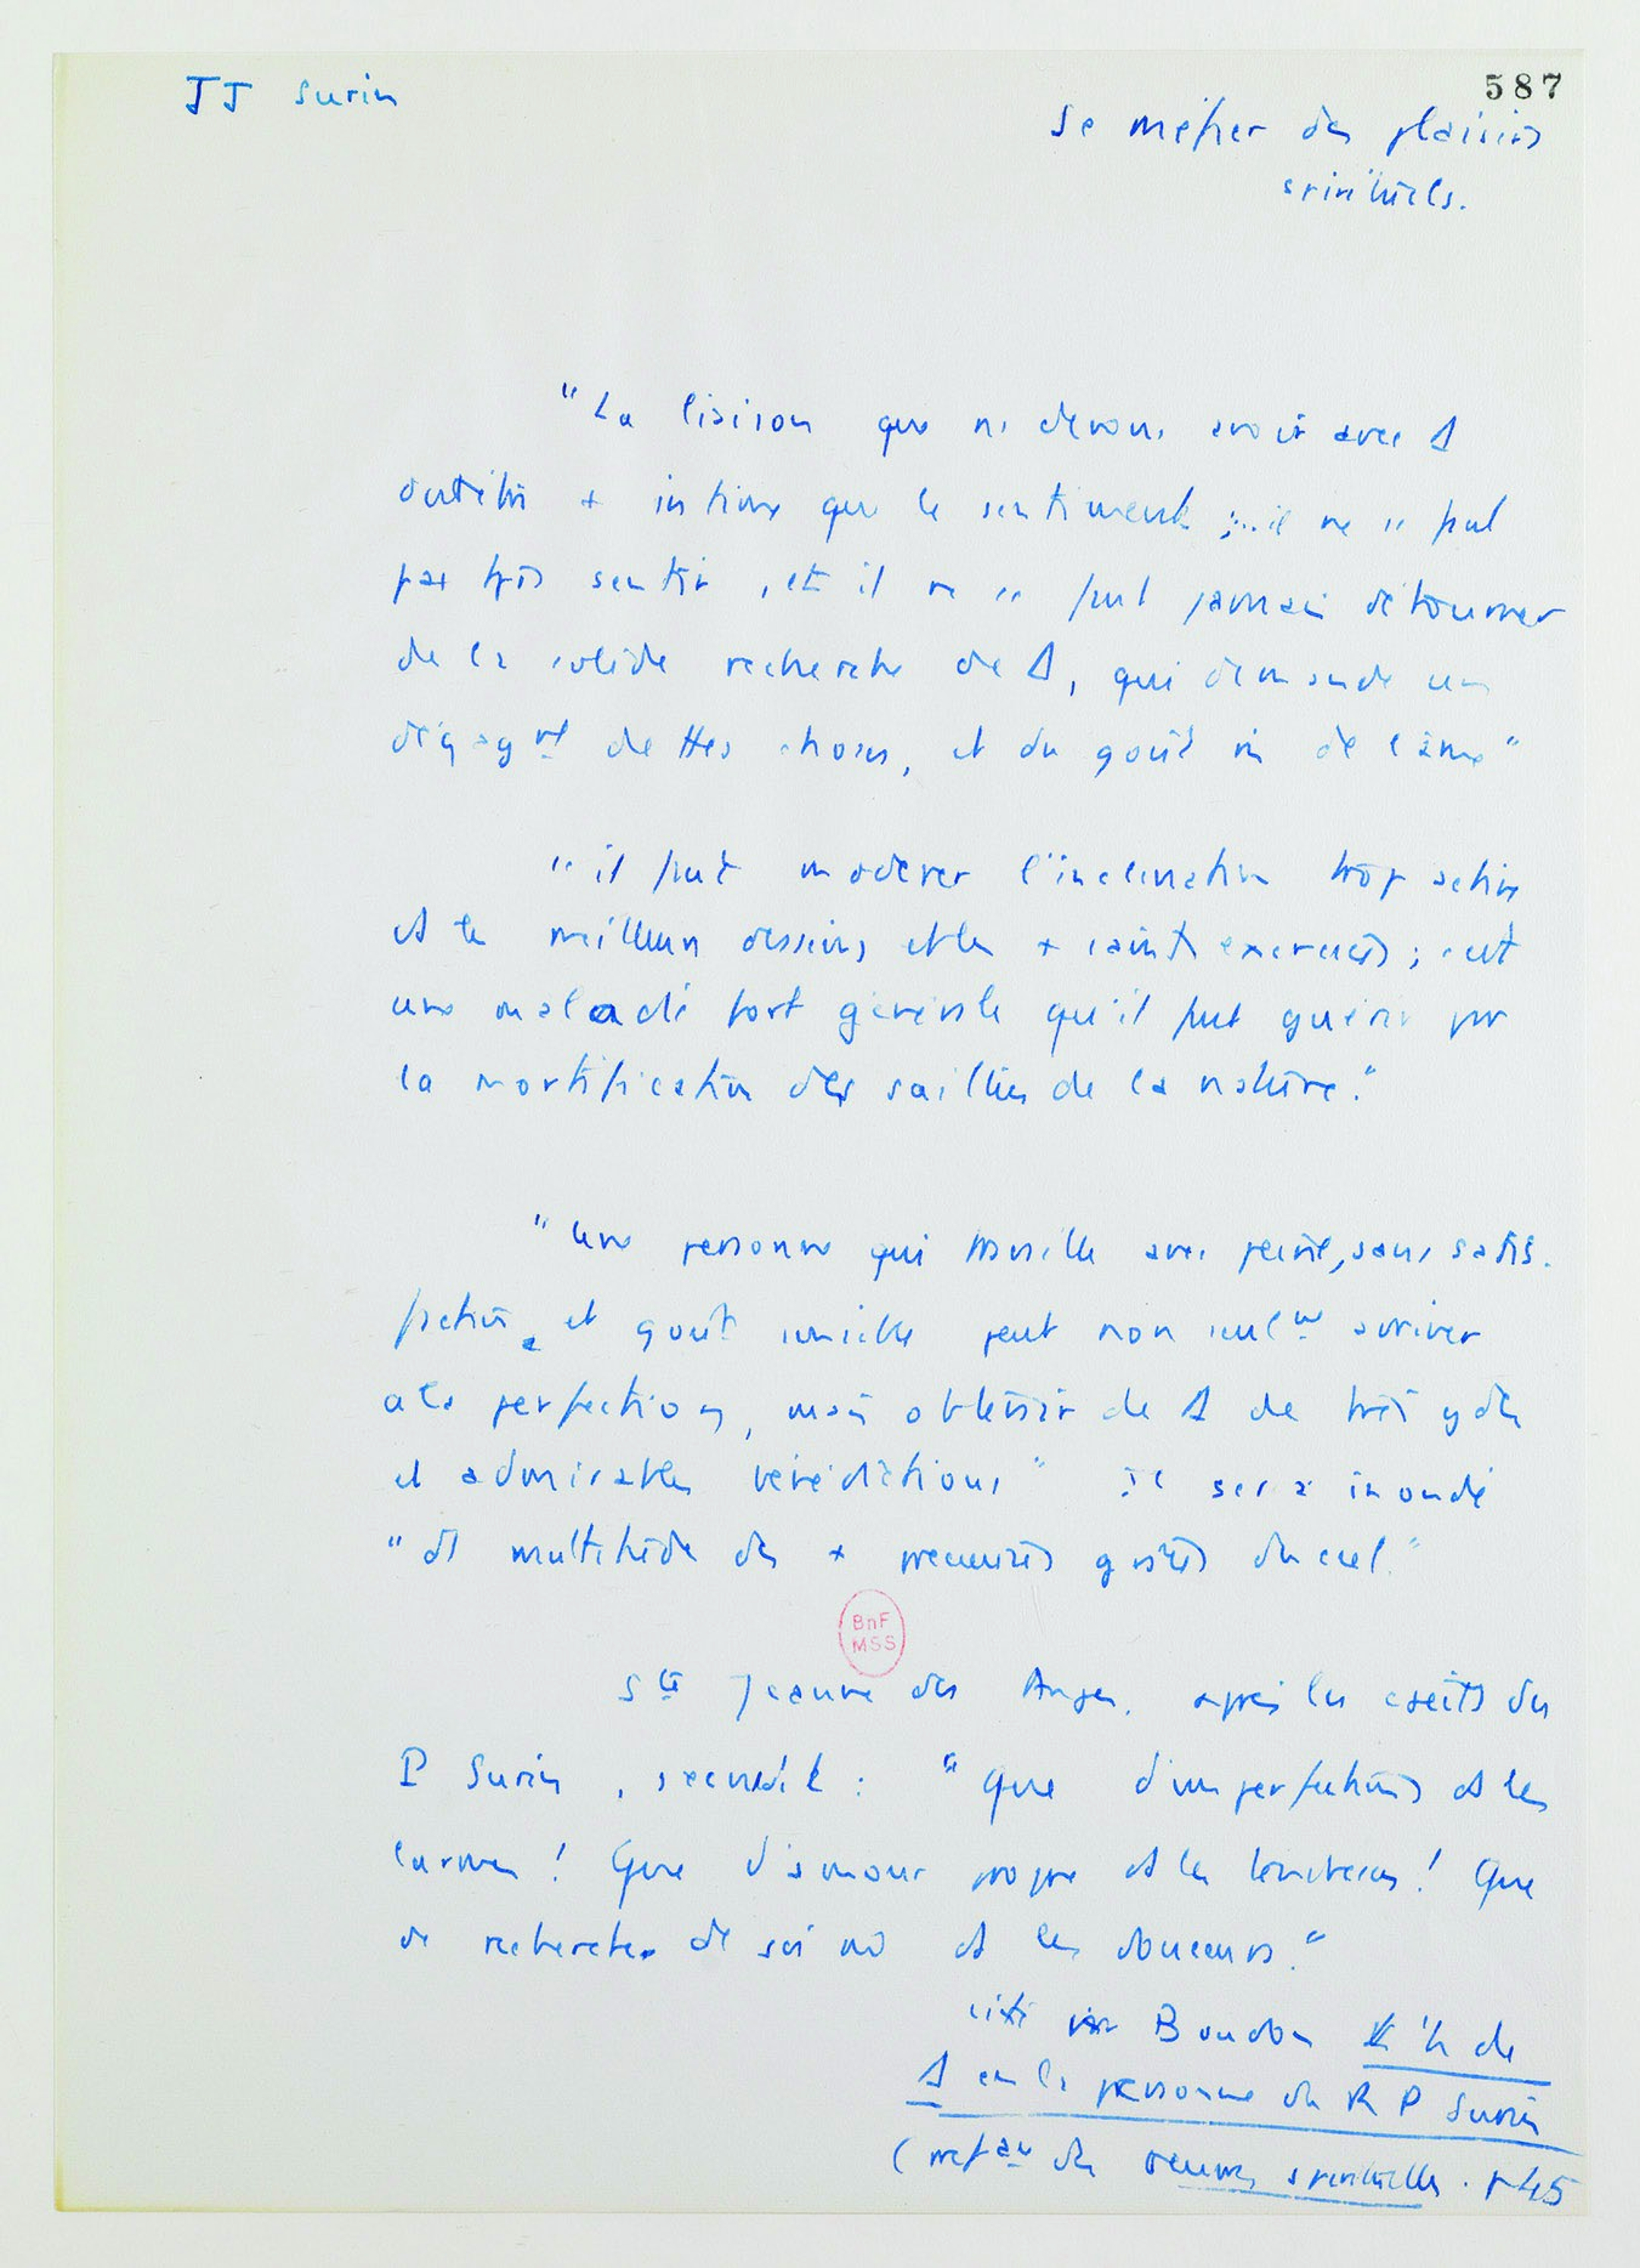 JJ Surin
587
Se méfier des plaisirs
spirituels.
"La liaison que ns devons avoir avec Δ
doit être + intime que le sentiment ;... il ne " faut
pas trop sentir, et il ne " faut jamais détourner
de la solide recherche de Δ, qui demande un
dégagᵗ de ttes choses, et du goût m̂ de l'âme"
"il faut modérer l'inclination trop active
ds les meilleurs desseins et les + saints exercices ; c'est
une maladie fort générale qu'il faut guérir par
la mortification des saillies de la nature."
"Une personne qui travaille avec peine, sans satis-
faction et goût sensible peut non seulᵗ arriver
à la perfection, mais obtenir de Δ de très gdes
et admirables bénédictions" Il sera inondé
"ds multitude des + précieuses grâces du ciel."
Sᵗᵉ Jeanne des Anges, après les écrits du
P Surin, : "Que d'imperfections ds les
larmes ! Que d'amour propre ds les tendresses ! Que
de recherches de soi m̂ ds les douceurs."
cité par Boudon de
Δ en la personne du R P Surin
( des œuvres spirituelles . p 45
BnF
MSS